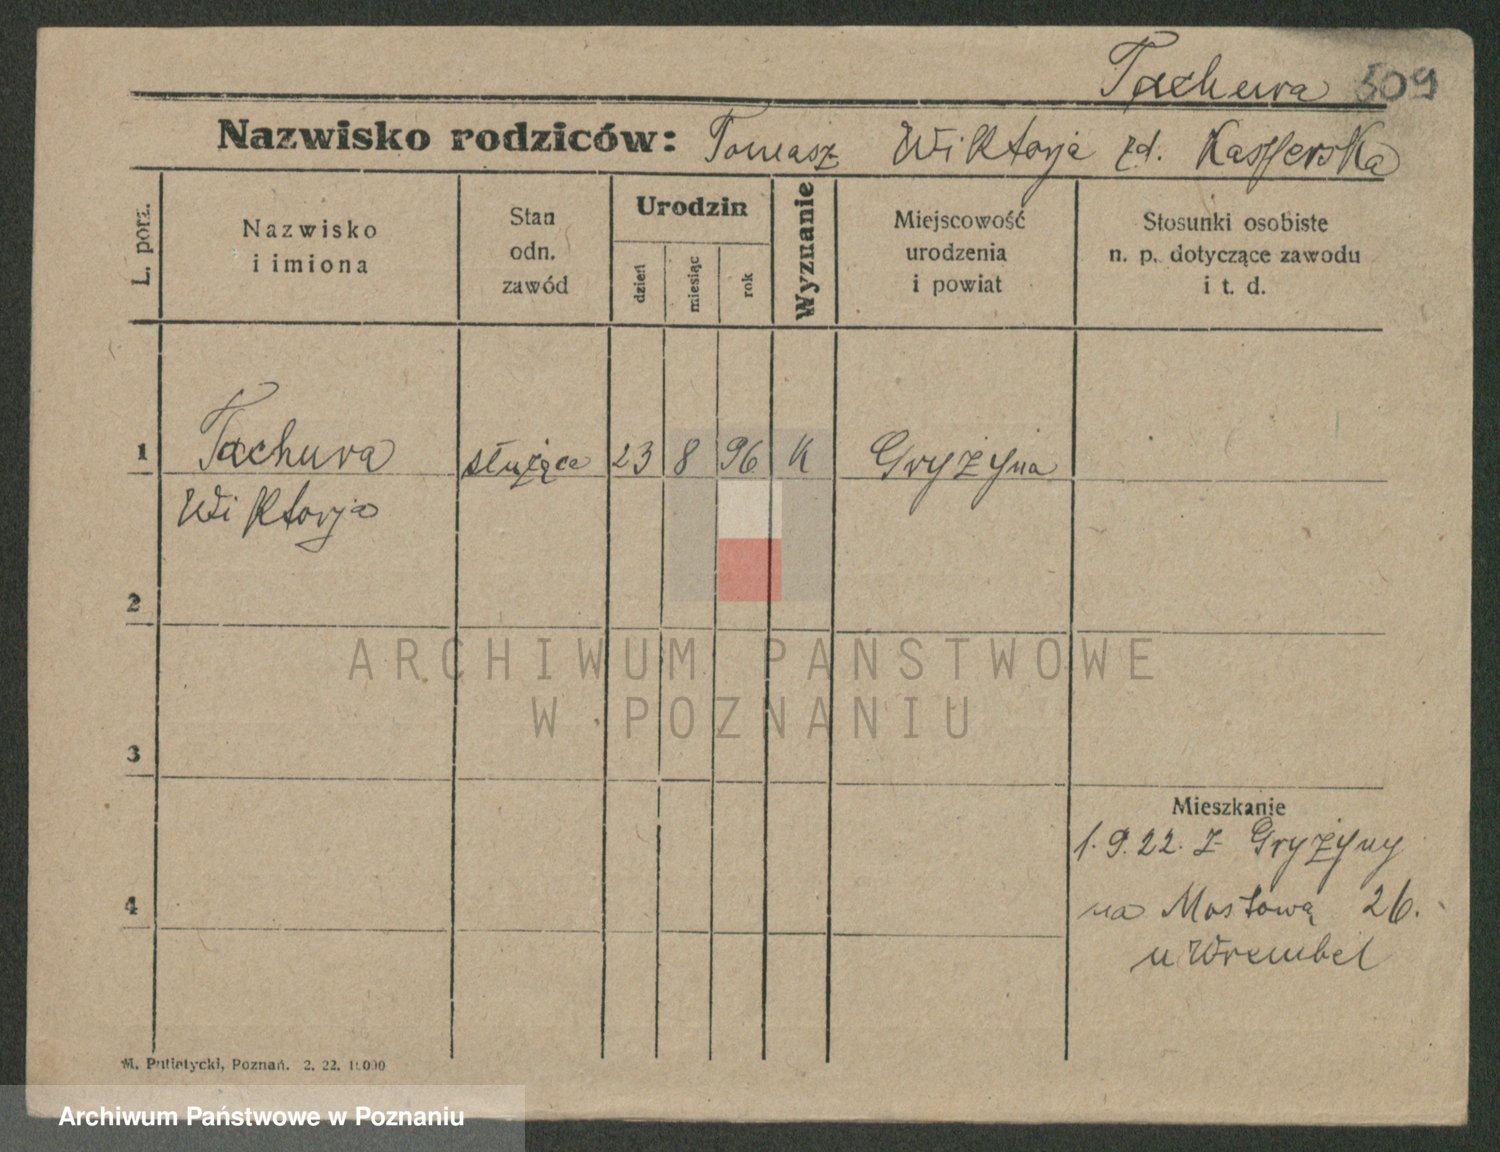 Tachura 309
Nazwisko rodziców: Tomasz Wiktorja zd. Kasperska
L. porz.
Nazwisko
i imiona
Stan
odn.
zawód
Urodzin
dzień
miesiąc
rok
Wyznanie
Miejscowość
urodzenia
i powiat
Stosunki osobiste
n. p. dotyczące zawodu
i t. d.
1 Tachura służąca 23 8 96 K Gryżyna
Wiktorja
2
ARCHIWUM PAŃSTWOWE
W POZNANIU
3
Mieszkanie
1.9.22. z Gryżyny
4
na Mostową 26.
u Wrembel
M. Putiatycki, Poznań. 2. 22. 10000
Archiwum Państwowe w Poznaniu